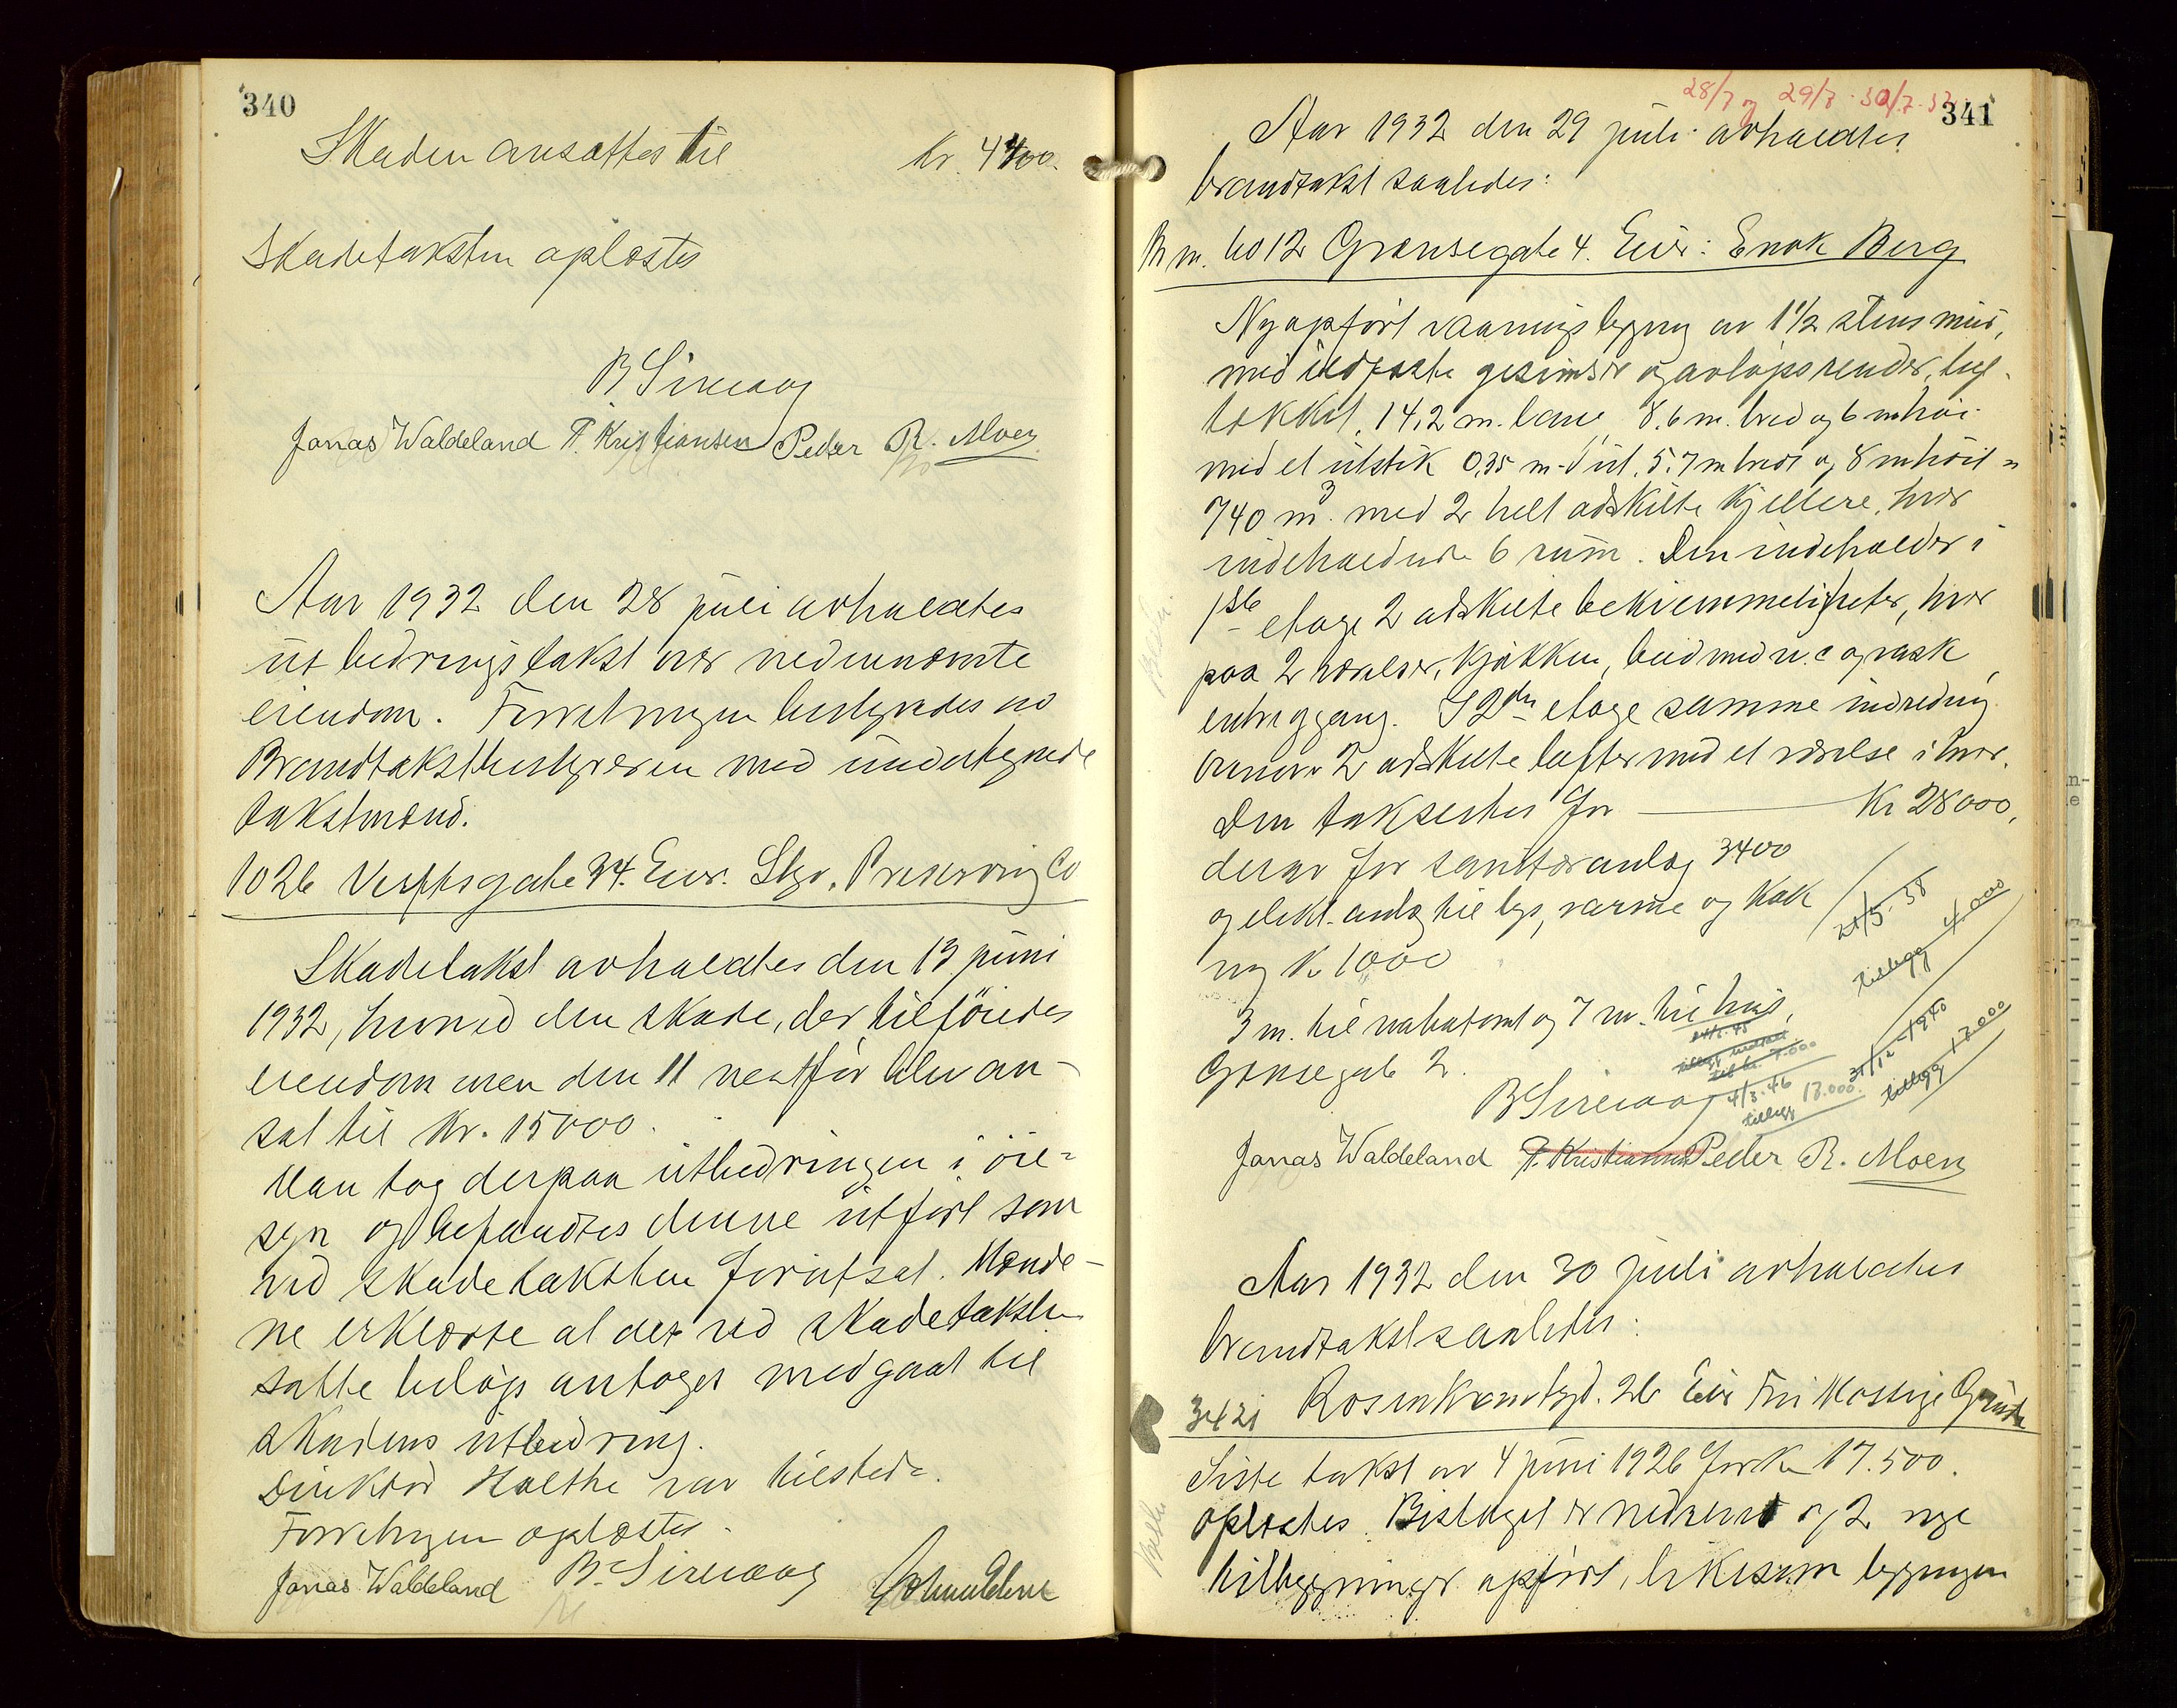 340
Skaden ansattes til Kr. 4400.
Skadetaksten oplæstes
B Sirevaag
Jonas Waldeland T. Kristiansen Peder R. Moen
Aar 1932 den 28 juli avholdtes
utbedringstakst over nedennævnte
eiendom. Forretningen bestyredes av
Brandtakstbestyreren med undertegnede
takstmænd.
1026 Verftsgate 34. Eier. Stgr. Preserving Co
Skadetakst avholdtes den 13 juni
1932, hvorved den skade, der tilföiedes
eiendommen den 11 næstfør blev an-
sat til Kr. 15000.
Man tog derpaa utbedringen i öie-
syn og befandtes denne utfört som
ved skadetaksten forutsat. Mænde-
ne erklærte at det ved skadetaksten
satte belöp antages medgaat til
skadens utbedring.
Direktör Holthe var tilstede.
Forretningen oplæstes.
Jonas Waldeland B. Sirevaag
28/7 og 29/7 - 30/7-32
341
Aar 1932 den 29 juli avholdtes
brandtakst saaledes:
Grænsegate 4. Eier: Enok Berg
Nyopfört vaaningsbygning av 1 1/2 stens mur,
med ildfaste gesimser og avløpsrender, tegl-
tækket, 14,2 m. lang 8,6 m. bred og 6 m høi
med et utstik 0,35 m. ut, 5.7 m bredt og 8 m höit =
740 m³. med 2 helt adskilte kjellere, hver
indeholdende 6 rum. Den indeholder i
1ste etage 2 adskilte bekvemmeligheter, hver
paa 2 værelser, kjökken, bad med w.c og vask
entre og gang. I 2den etage samme indredning
ovenover 2 adskilte lofter med et værelse i hver.
Den takseres for Kr 28000,
derav for sanitæranlæg 3400
og elekt. anlæg til lys, varme og kok
ning Kr 1000
21/5. 38
tillegg 4.000
3 m. til nabotomt og 7 m. til hus,
Grænsegate 2.
31/12-1940
tillegg 17.000
4/3.46
tillegg 13.000
B Sirevaag
Jonas Waldeland T. Kristiansen Peder R. Moen
Aar 1932 den 30 juli avholdtes
brandtakst saaledes:
3421 Rosenkrantzgd. 26 Eier Fru Grude
Siste takst av 4 juni 1926 for Kr 17.500.
oplæstes. Bislaget er nedrevet og 2 nye
tilbygninger opfört, likesom bygningen